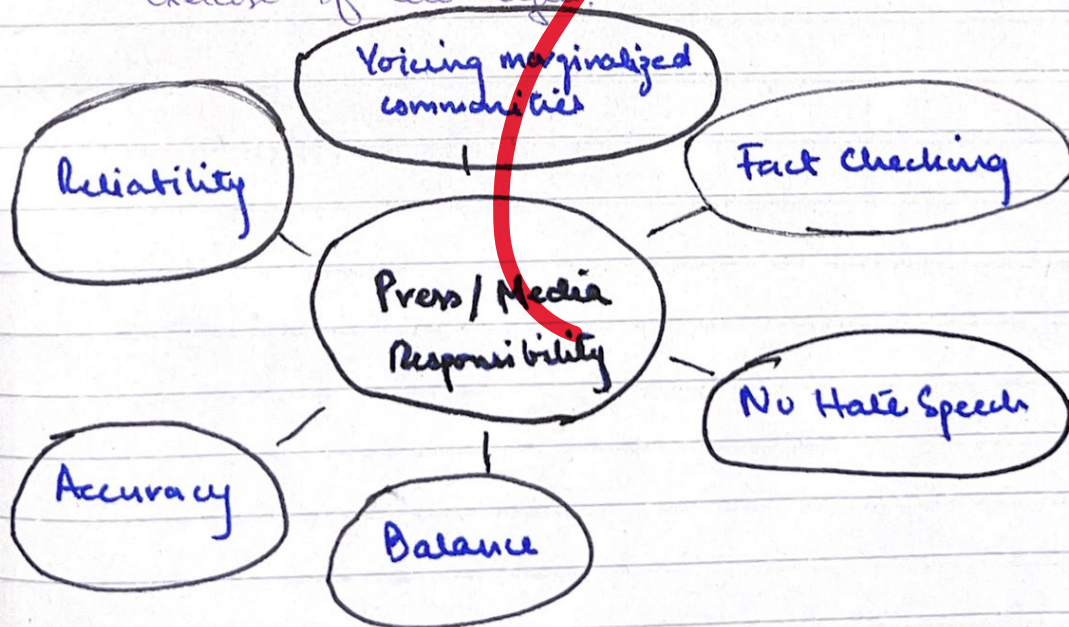 exercise of
Voicing marginalized
communities
Reliability
Fact Checking
Press/Media
Responsibility
No Hate Speech
Accuracy
Balance